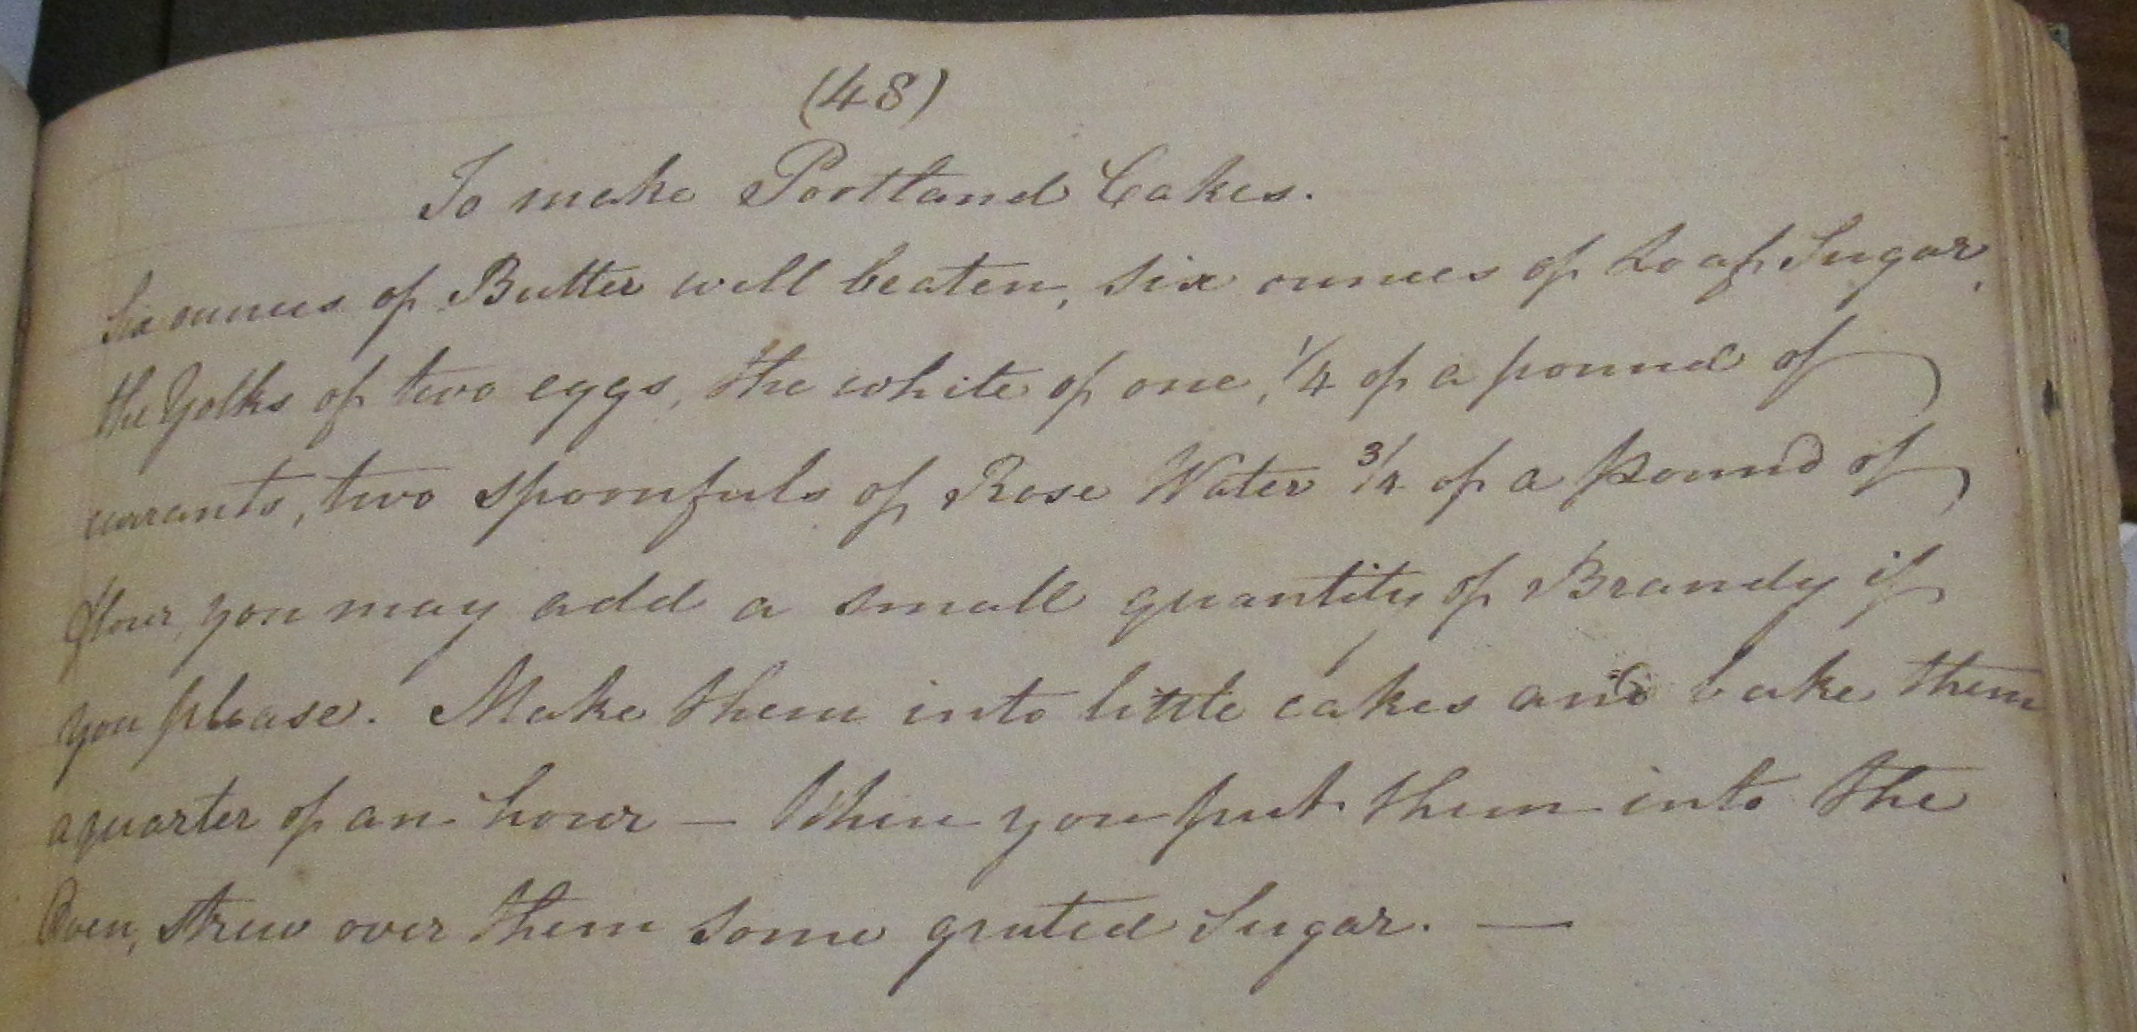 (48)
To make Portland Cakes.
Six ounces of Butter well beaten, six ounces of Loaf Sugar,
the Yolks of two eggs, the white of one, 1/4 of a pound of
currants, two spoonfuls of Rose Water 3/4 of a pound of
flour, you may add a small quantity of Brandy if
you please. Make them into little cakes and bake them
a quarter of an hour — When you put them into the
Oven, strew over them some grated Sugar. —